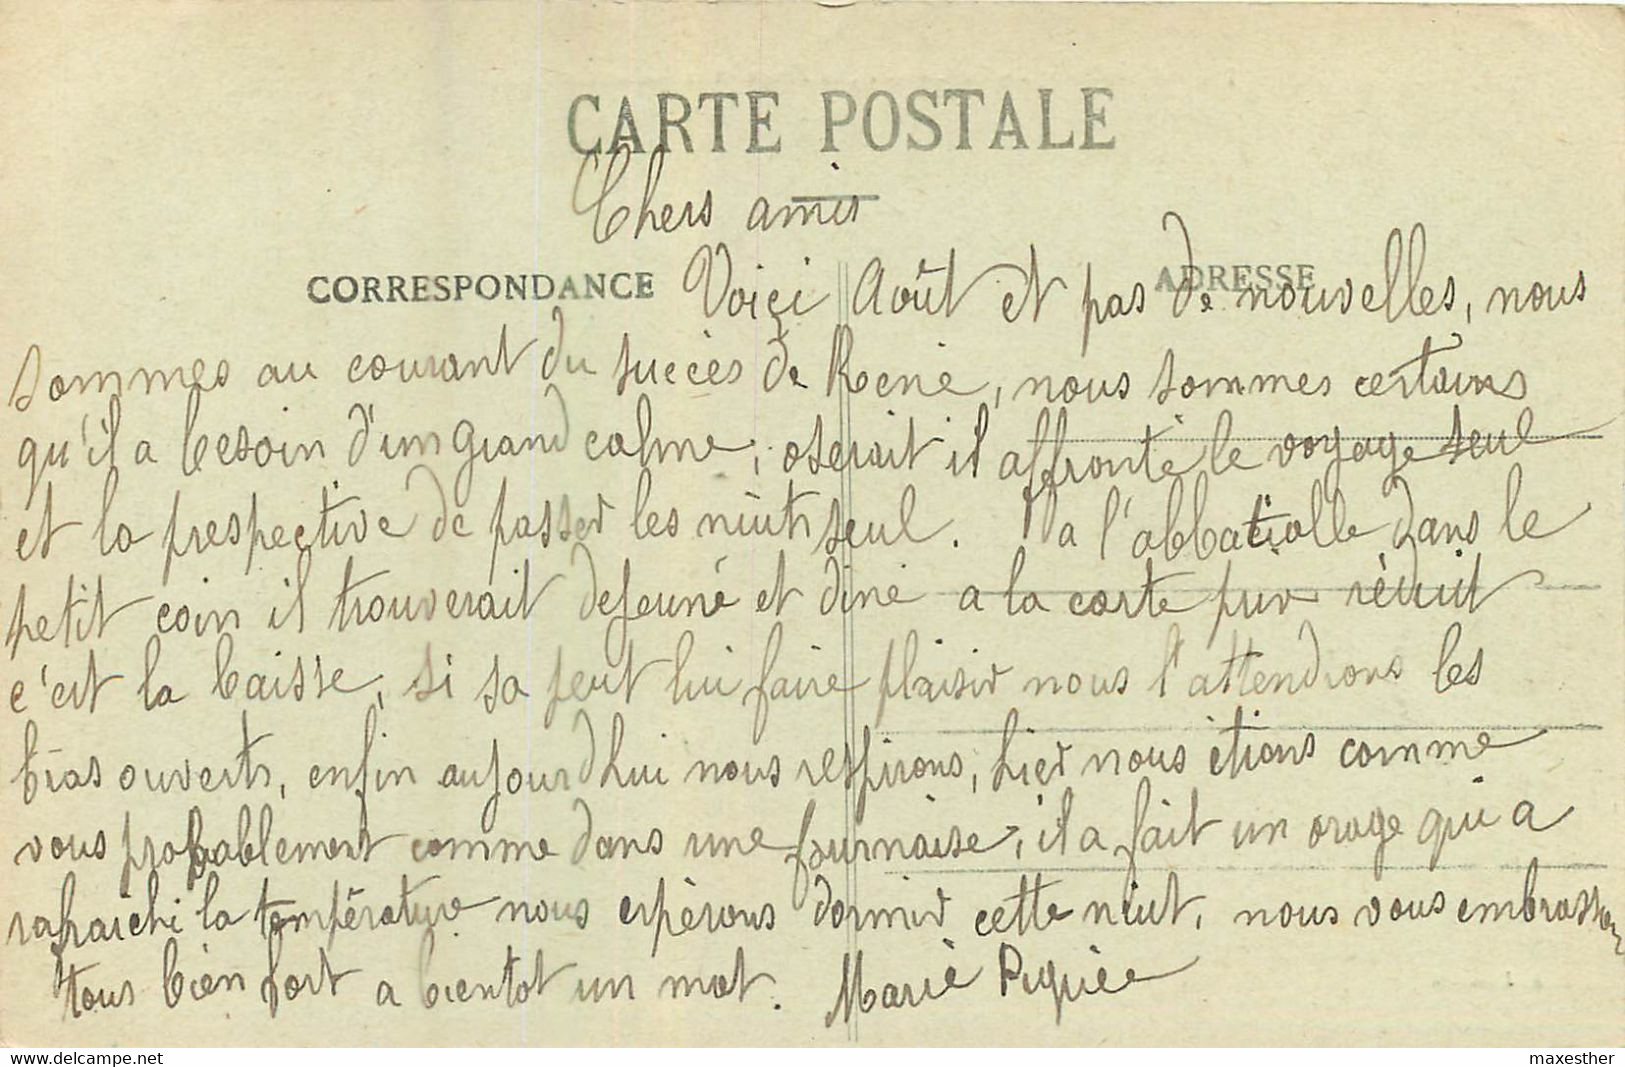 CARTE POSTALE
Chers amis
CORRESPONDANCE
ADRESSE
Voiçi Août et pas de nouvelles, nous
sommes au courant du succès de Réné, nous sommes certains
qu'il a besoin d'un grand calme, oserait il affronté le voyage seul
et la prespective de passer les nuits seul. a l'abbatialle dans le
petit coin il trouverait dejeuné et diné a la carte prix réduit
c'est la baisse, si sa peut lui faire plaisir nous l'attendrons les
bras ouverts, enfin aujourd hui nous respirons, hier nous étions comme
vous probablement comme dans une fournaise, il a fait un orage qui a
rafraichi la température nous espérons dormir cette nuit, nous vous embrassons
tous bien fort a bientot un mot. Marie
www.delcampe.net
maxesther